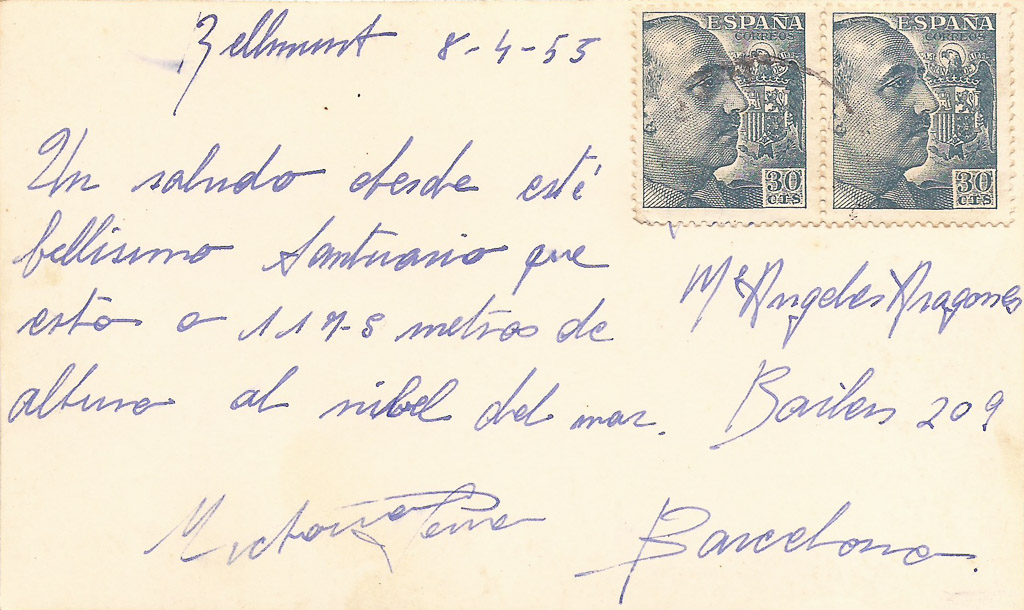 Bellmunt 8-4-53
ESPAÑA
CORREOS
30
CTS
ESPAÑA
CORREOS
30
CTS
Un saludo desde esté
bellisimo Santuario que
está a 117-8 metros de
altura al nibel del mar.
Mª Angeles Aragones
Bailen 209
Barcelona.